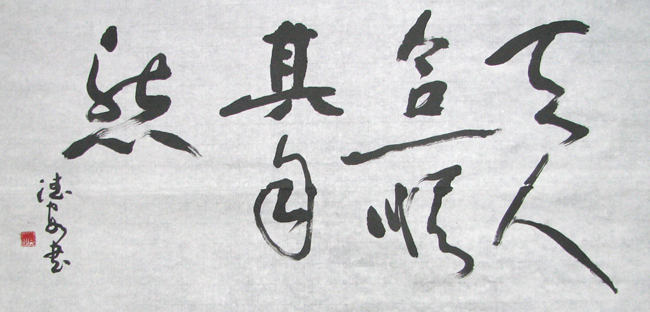 天人
合一顺
其自
然